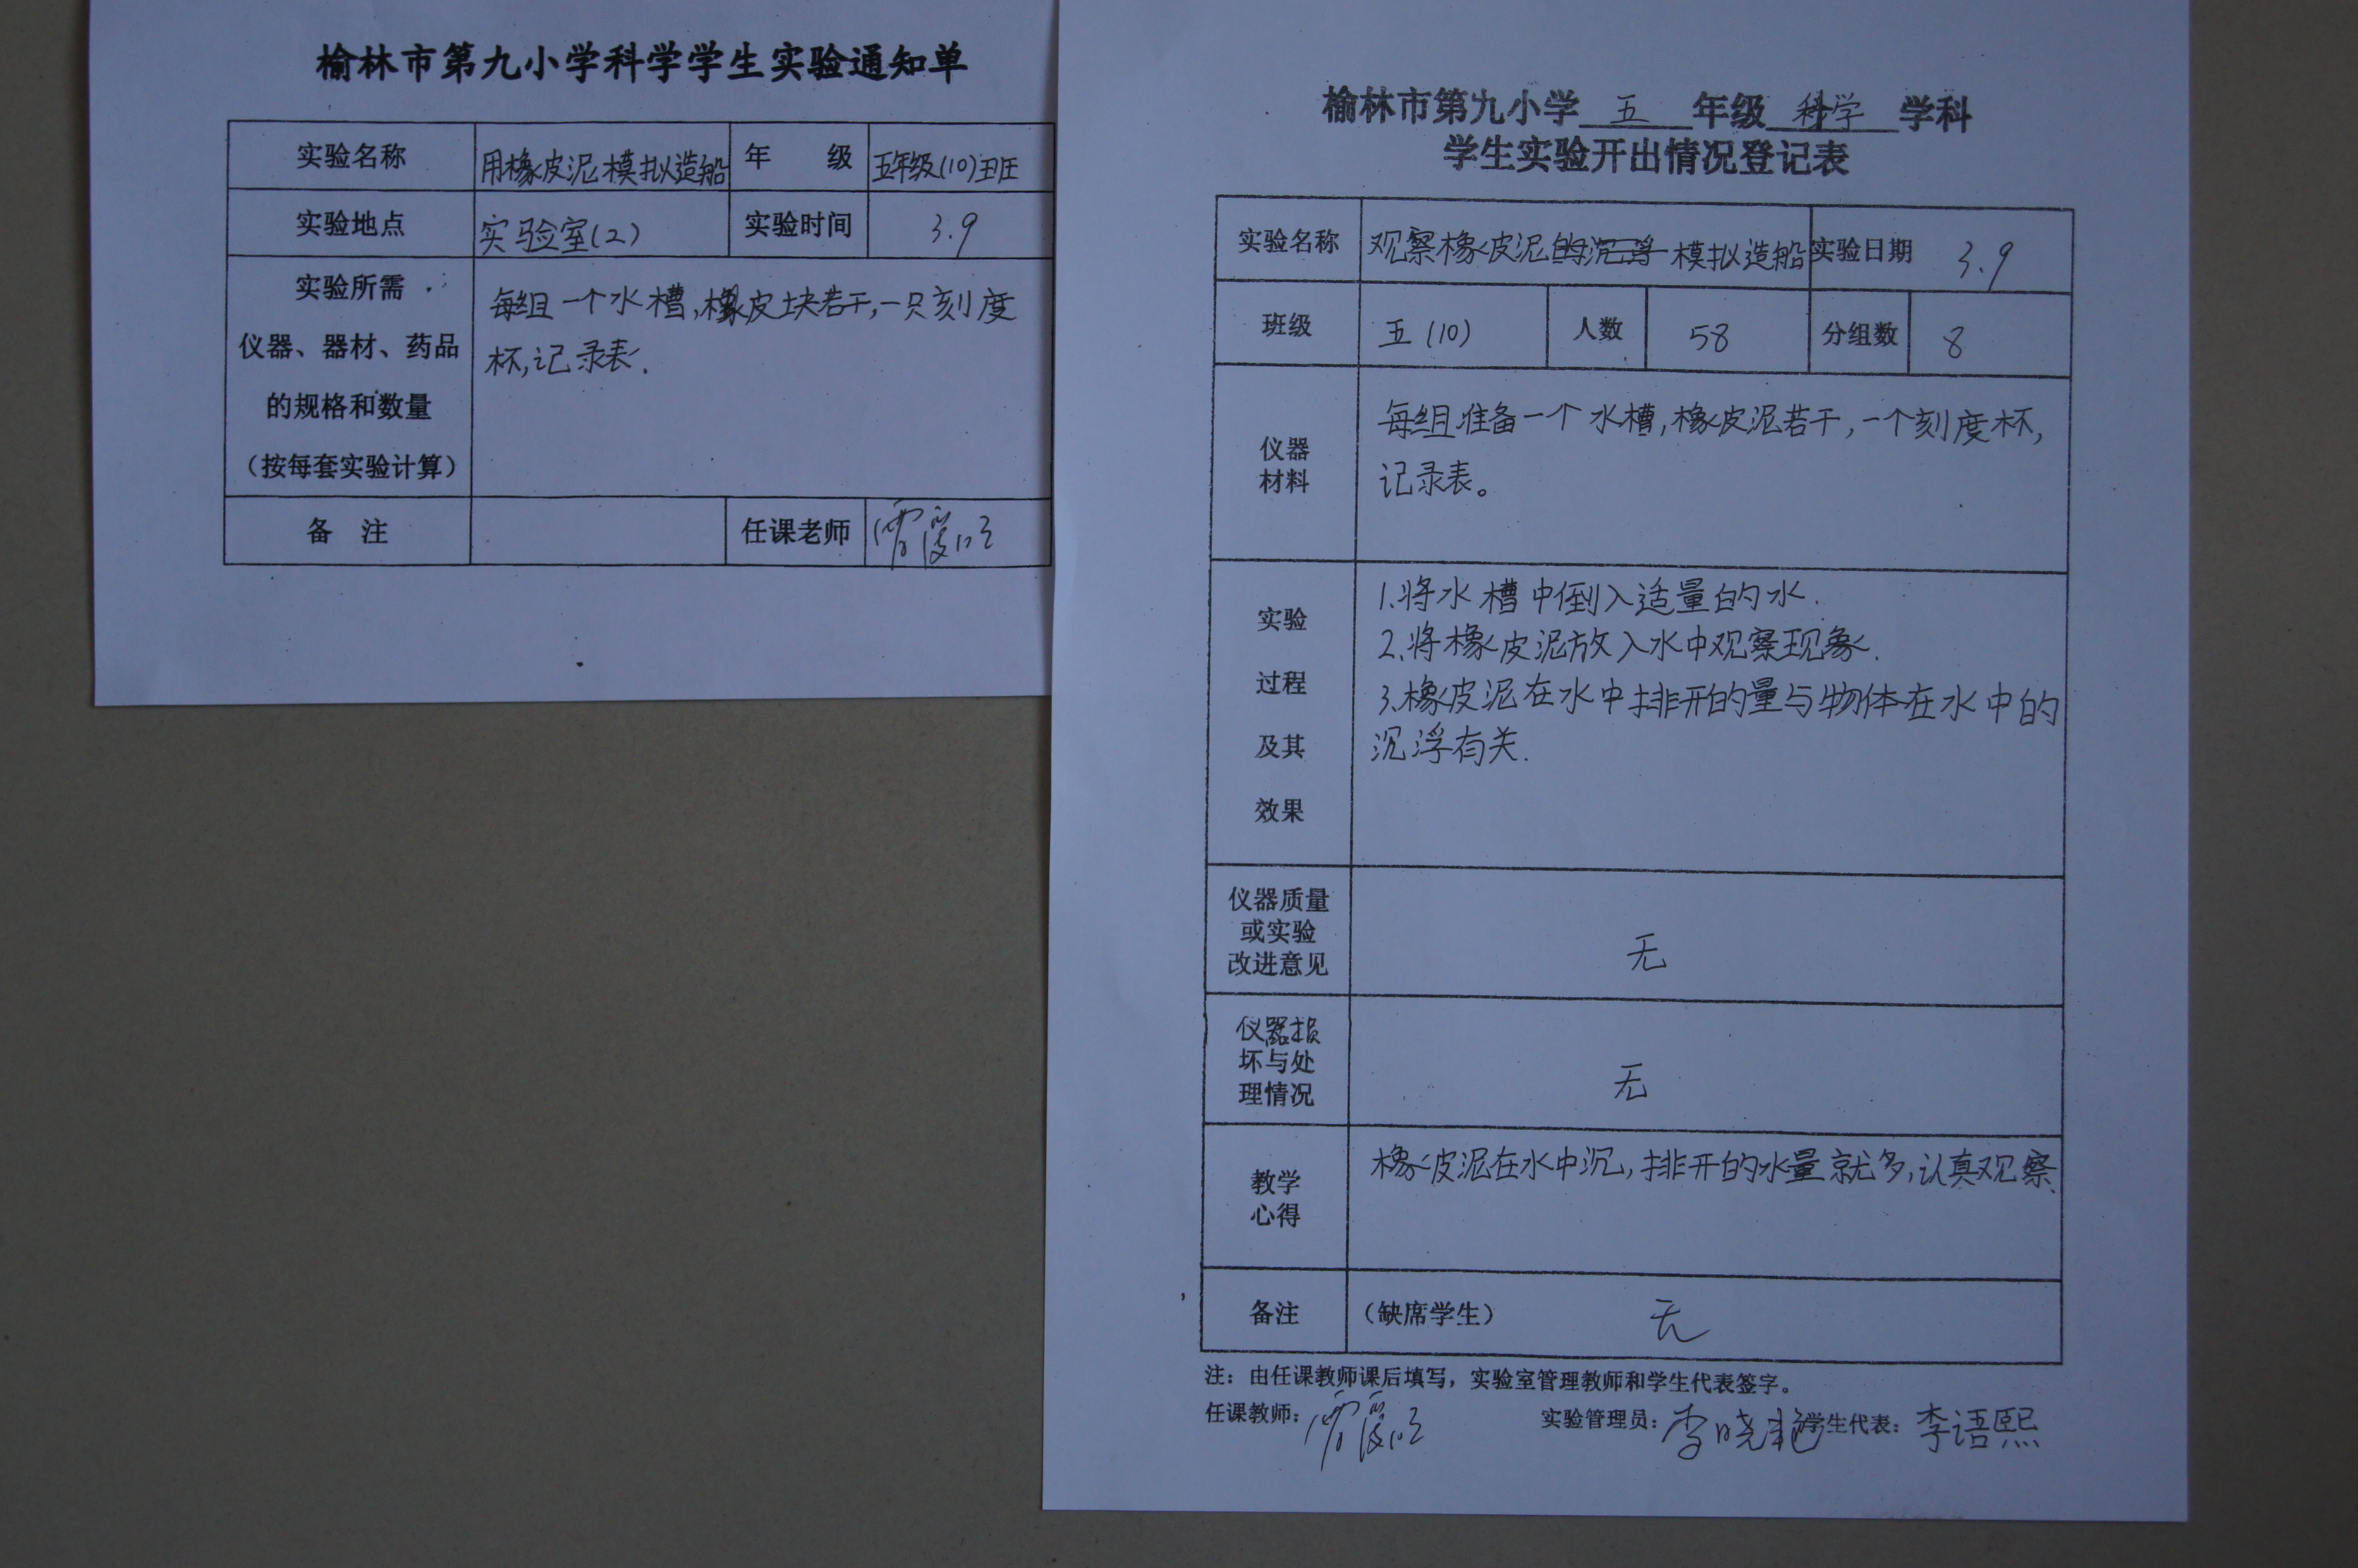 榆林市第九小学科学学生实验通知单
实验名称 用橡皮泥模拟造船 年 级 五年级(10)班
实验地点 实验室(2) 实验时间 3.9
实验所需
仪器、器材、药品
的规格和数量
（按每套实验计算）
每组一个水槽,橡皮块若干,一只刻度
杯,记录表.
备 注 任课老师
榆林市第九小学 五 年级 科学 学科
学生实验开出情况登记表
实验名称 观察橡皮泥的沉浮模拟造船 实验日期 3.9
班级 五(10) 人数 58 分组数 8
仪器
材料
每组准备一个水槽,橡皮泥若干,一个刻度杯,
记录表。
实验
过程
及其
效果
1.将水槽中倒入适量的水.
2.将橡皮泥放入水中观察现象.
3.橡皮泥在水中排开的量与物体在水中的
沉浮有关.
仪器质量
或实验
改进意见
无
仪器损
坏与处
理情况
无
教学
心得
橡皮泥在水中沉,排开的水量就多,认真观察.
备注 （缺席学生） 无
注：由任课教师课后填写，实验室管理教师和学生代表签字。
任课教师： 实验管理员：李晓艳 学生代表：李语熙